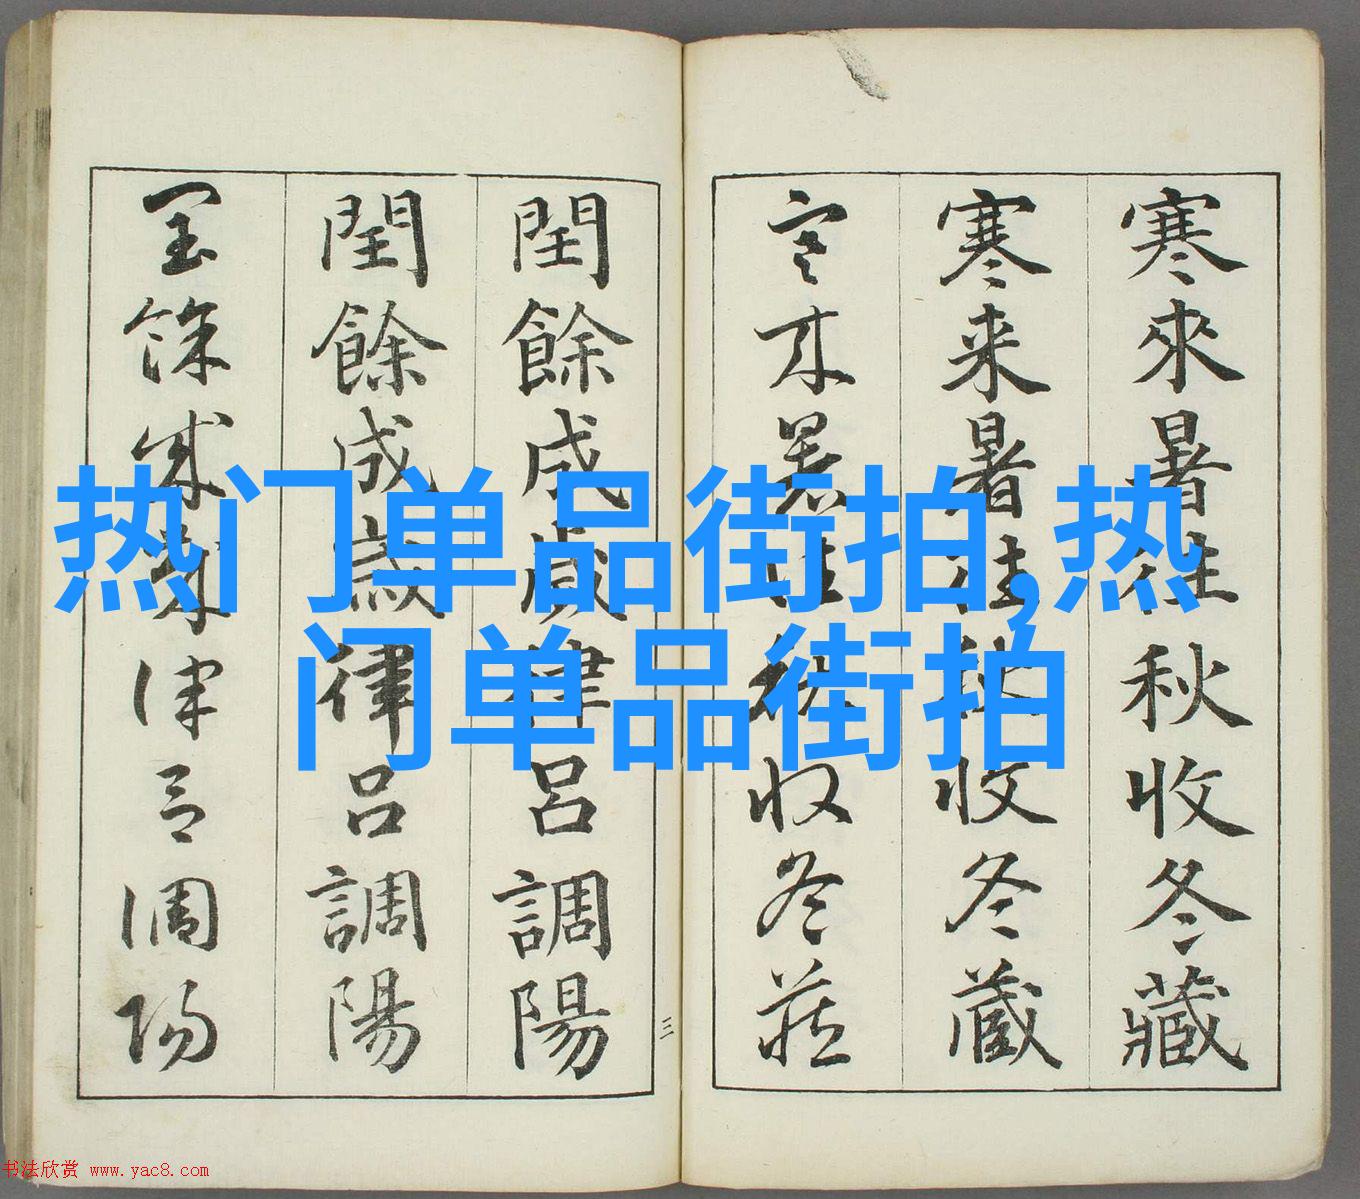 寒來暑往秋收冬藏
寒来暑往秋收冬蔵
寒来暑往秋收冬藏
三
閏餘成歲律呂調陽
閏餘成歲律呂調陽
閏餘成歲律呂調陽
热门单品街拍,热
门单品街拍
书法欣赏 www.yac8.com